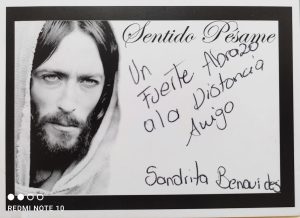 Sentido Pésame
Un
Fuerte Abrazo
a la Distancia
Amigo
Sandrita Benavides
REDMI NOTE 10